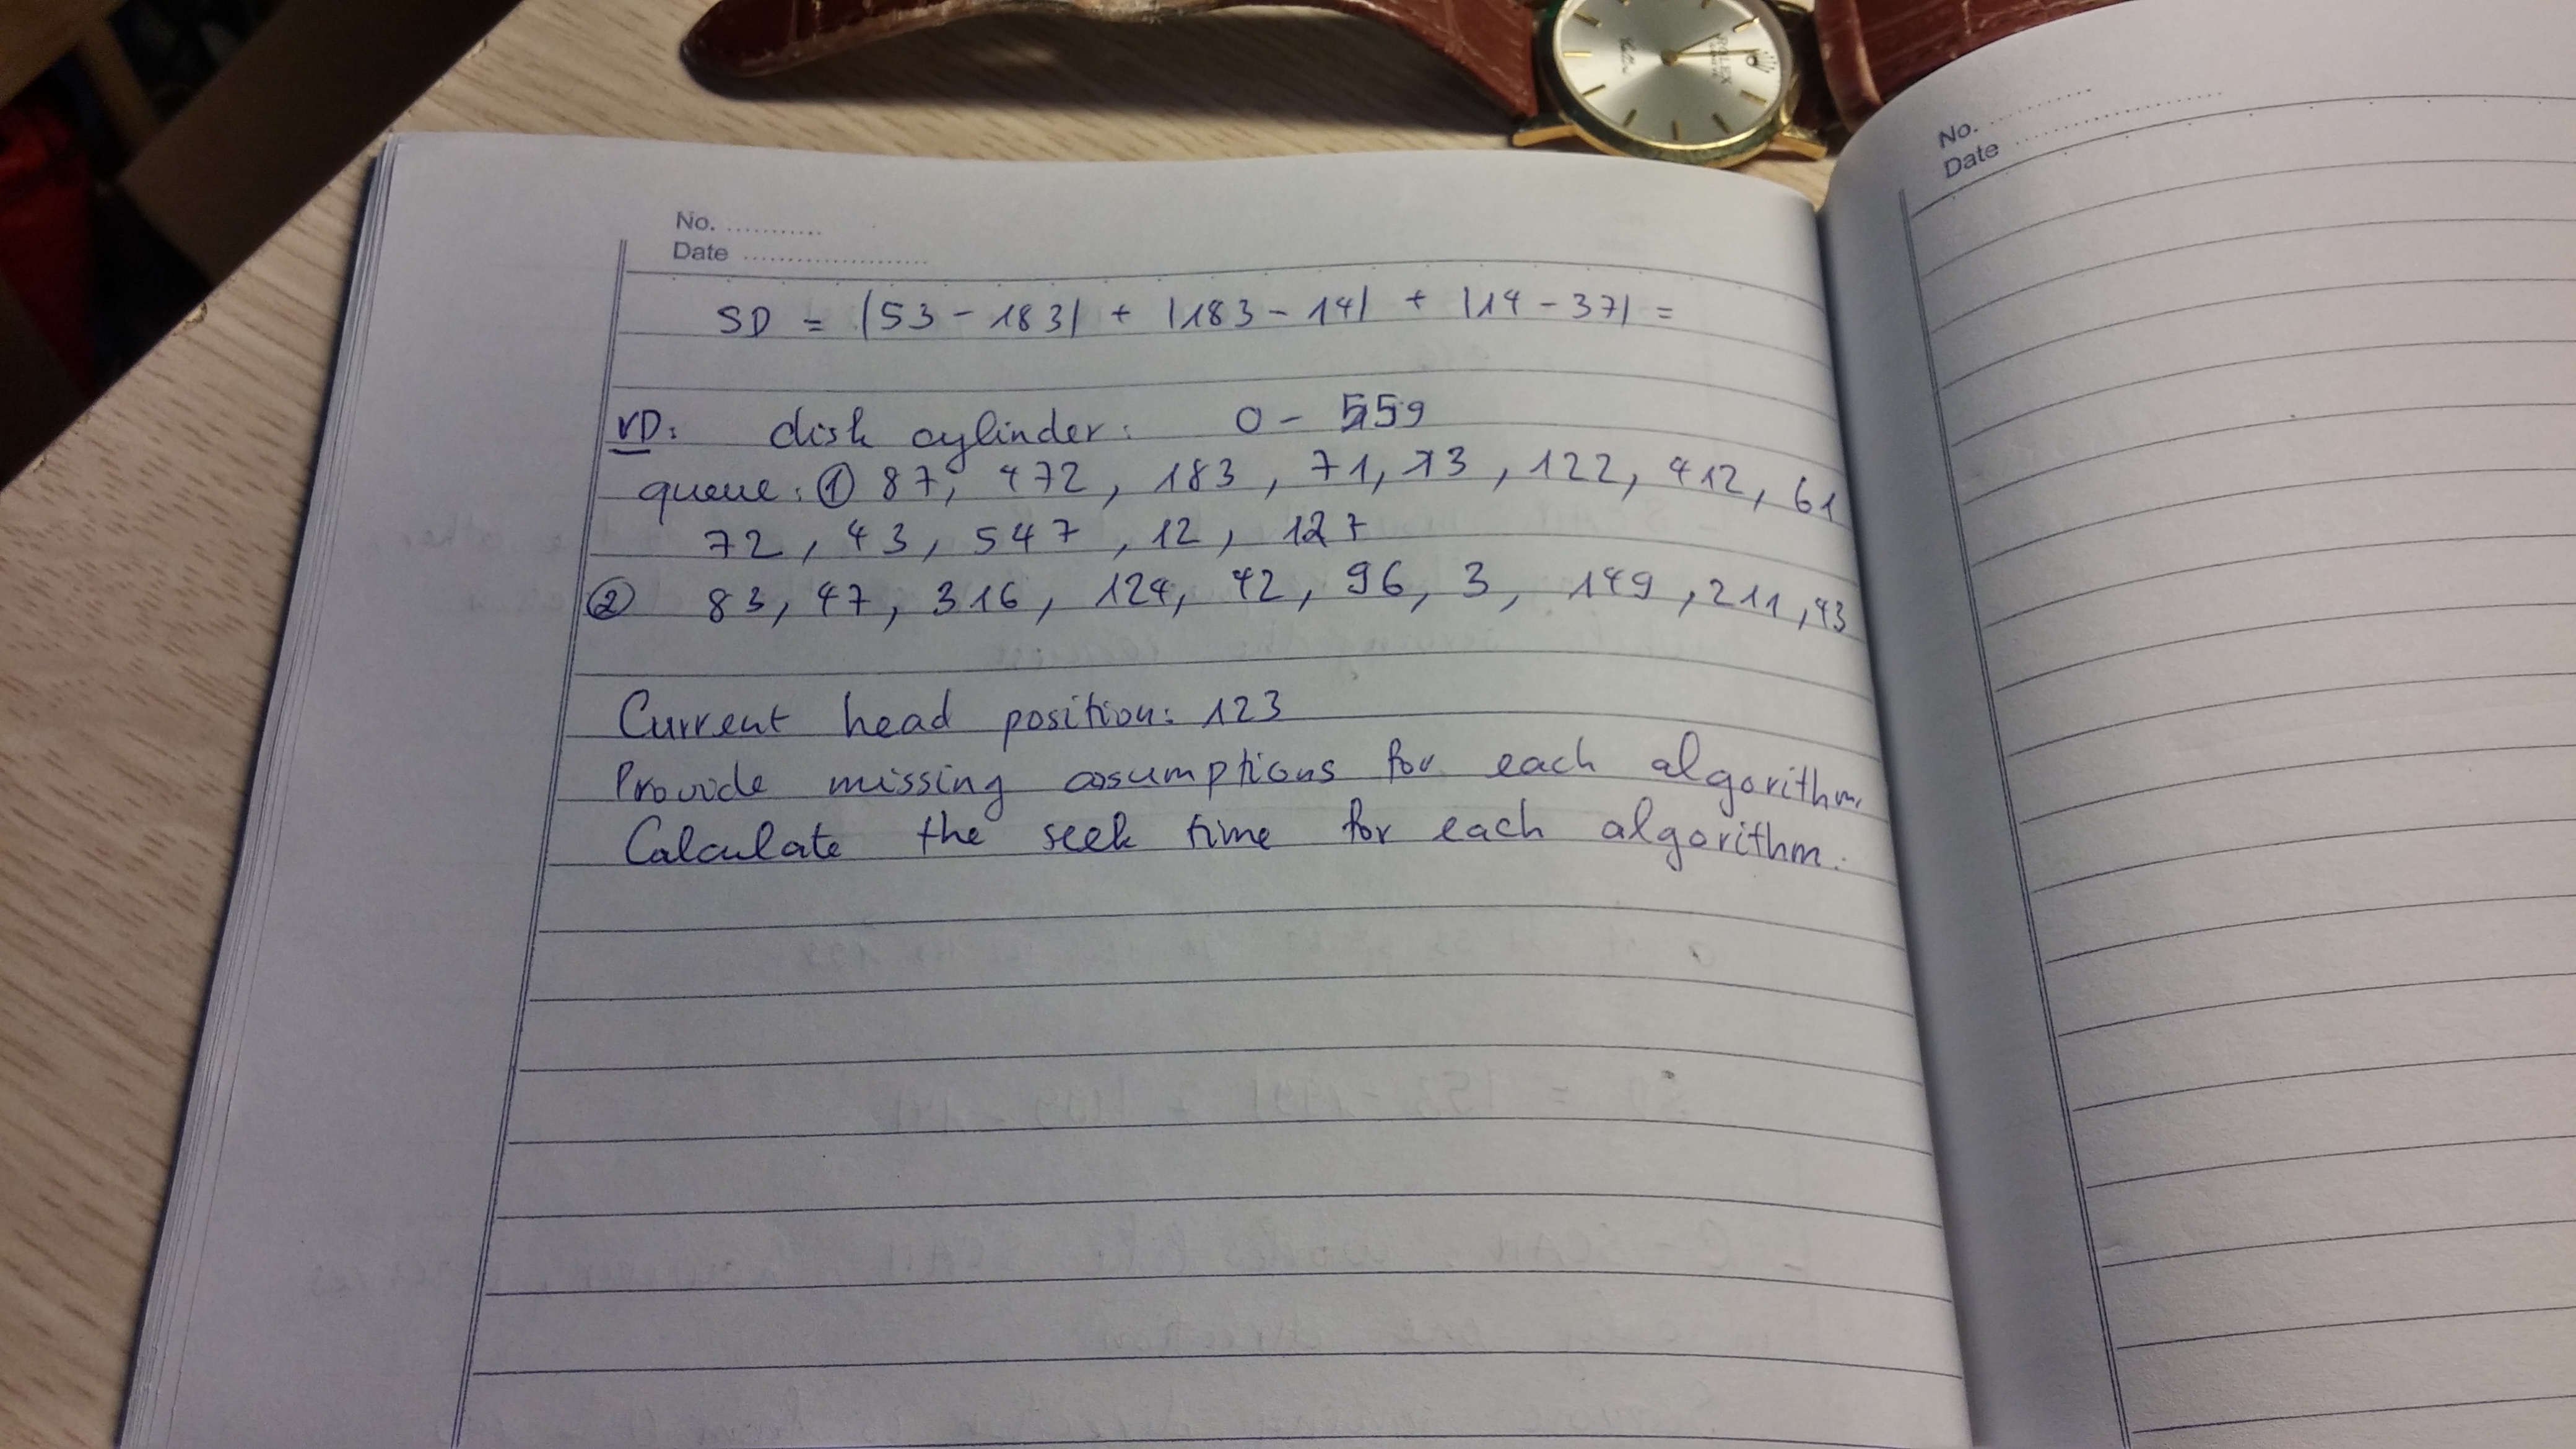 ROLEX
Cellini
No. ............
Date ......................
No. ............
Date ......................
SD = |53 - 183| + |183 - 14| + |14 - 37| =
VD: disk cylinder: 0 - 559
queue: ① 87, 472, 183, 71, 13, 122, 412, 61
72, 43, 547, 12, 127
② 83, 47, 316, 124, 42, 96, 3, 149, 211, 43
Current head position: 123
Provide missing assumptions for each algorithm.
Calculate the seek time for each algorithm.